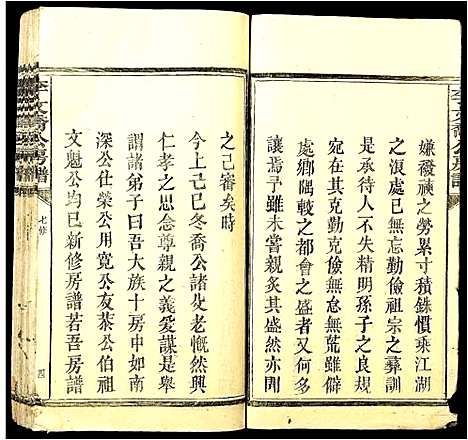 嫌襏襫之勞累寸積銖慣乘江湖
之浪處已無忘勤儉祖宗之彝訓
是承待人不失精明孫子之良規
宛在其克勤克儉無怠無荒雖僻
處鄉隅較之都會之盛者又何多
讓焉予雖未嘗親炙其盛然亦因
之己審矣時
今上己巳冬喬公諸父老慨然興
仁孝之思念尊親之義爰謀是舉
謂諸弟子曰吾大族十房中如南
深公仕榮公用寬公友茶公伯祖
文魁公均已新修房譜若吾房譜
李文喬公房譜
七修
四